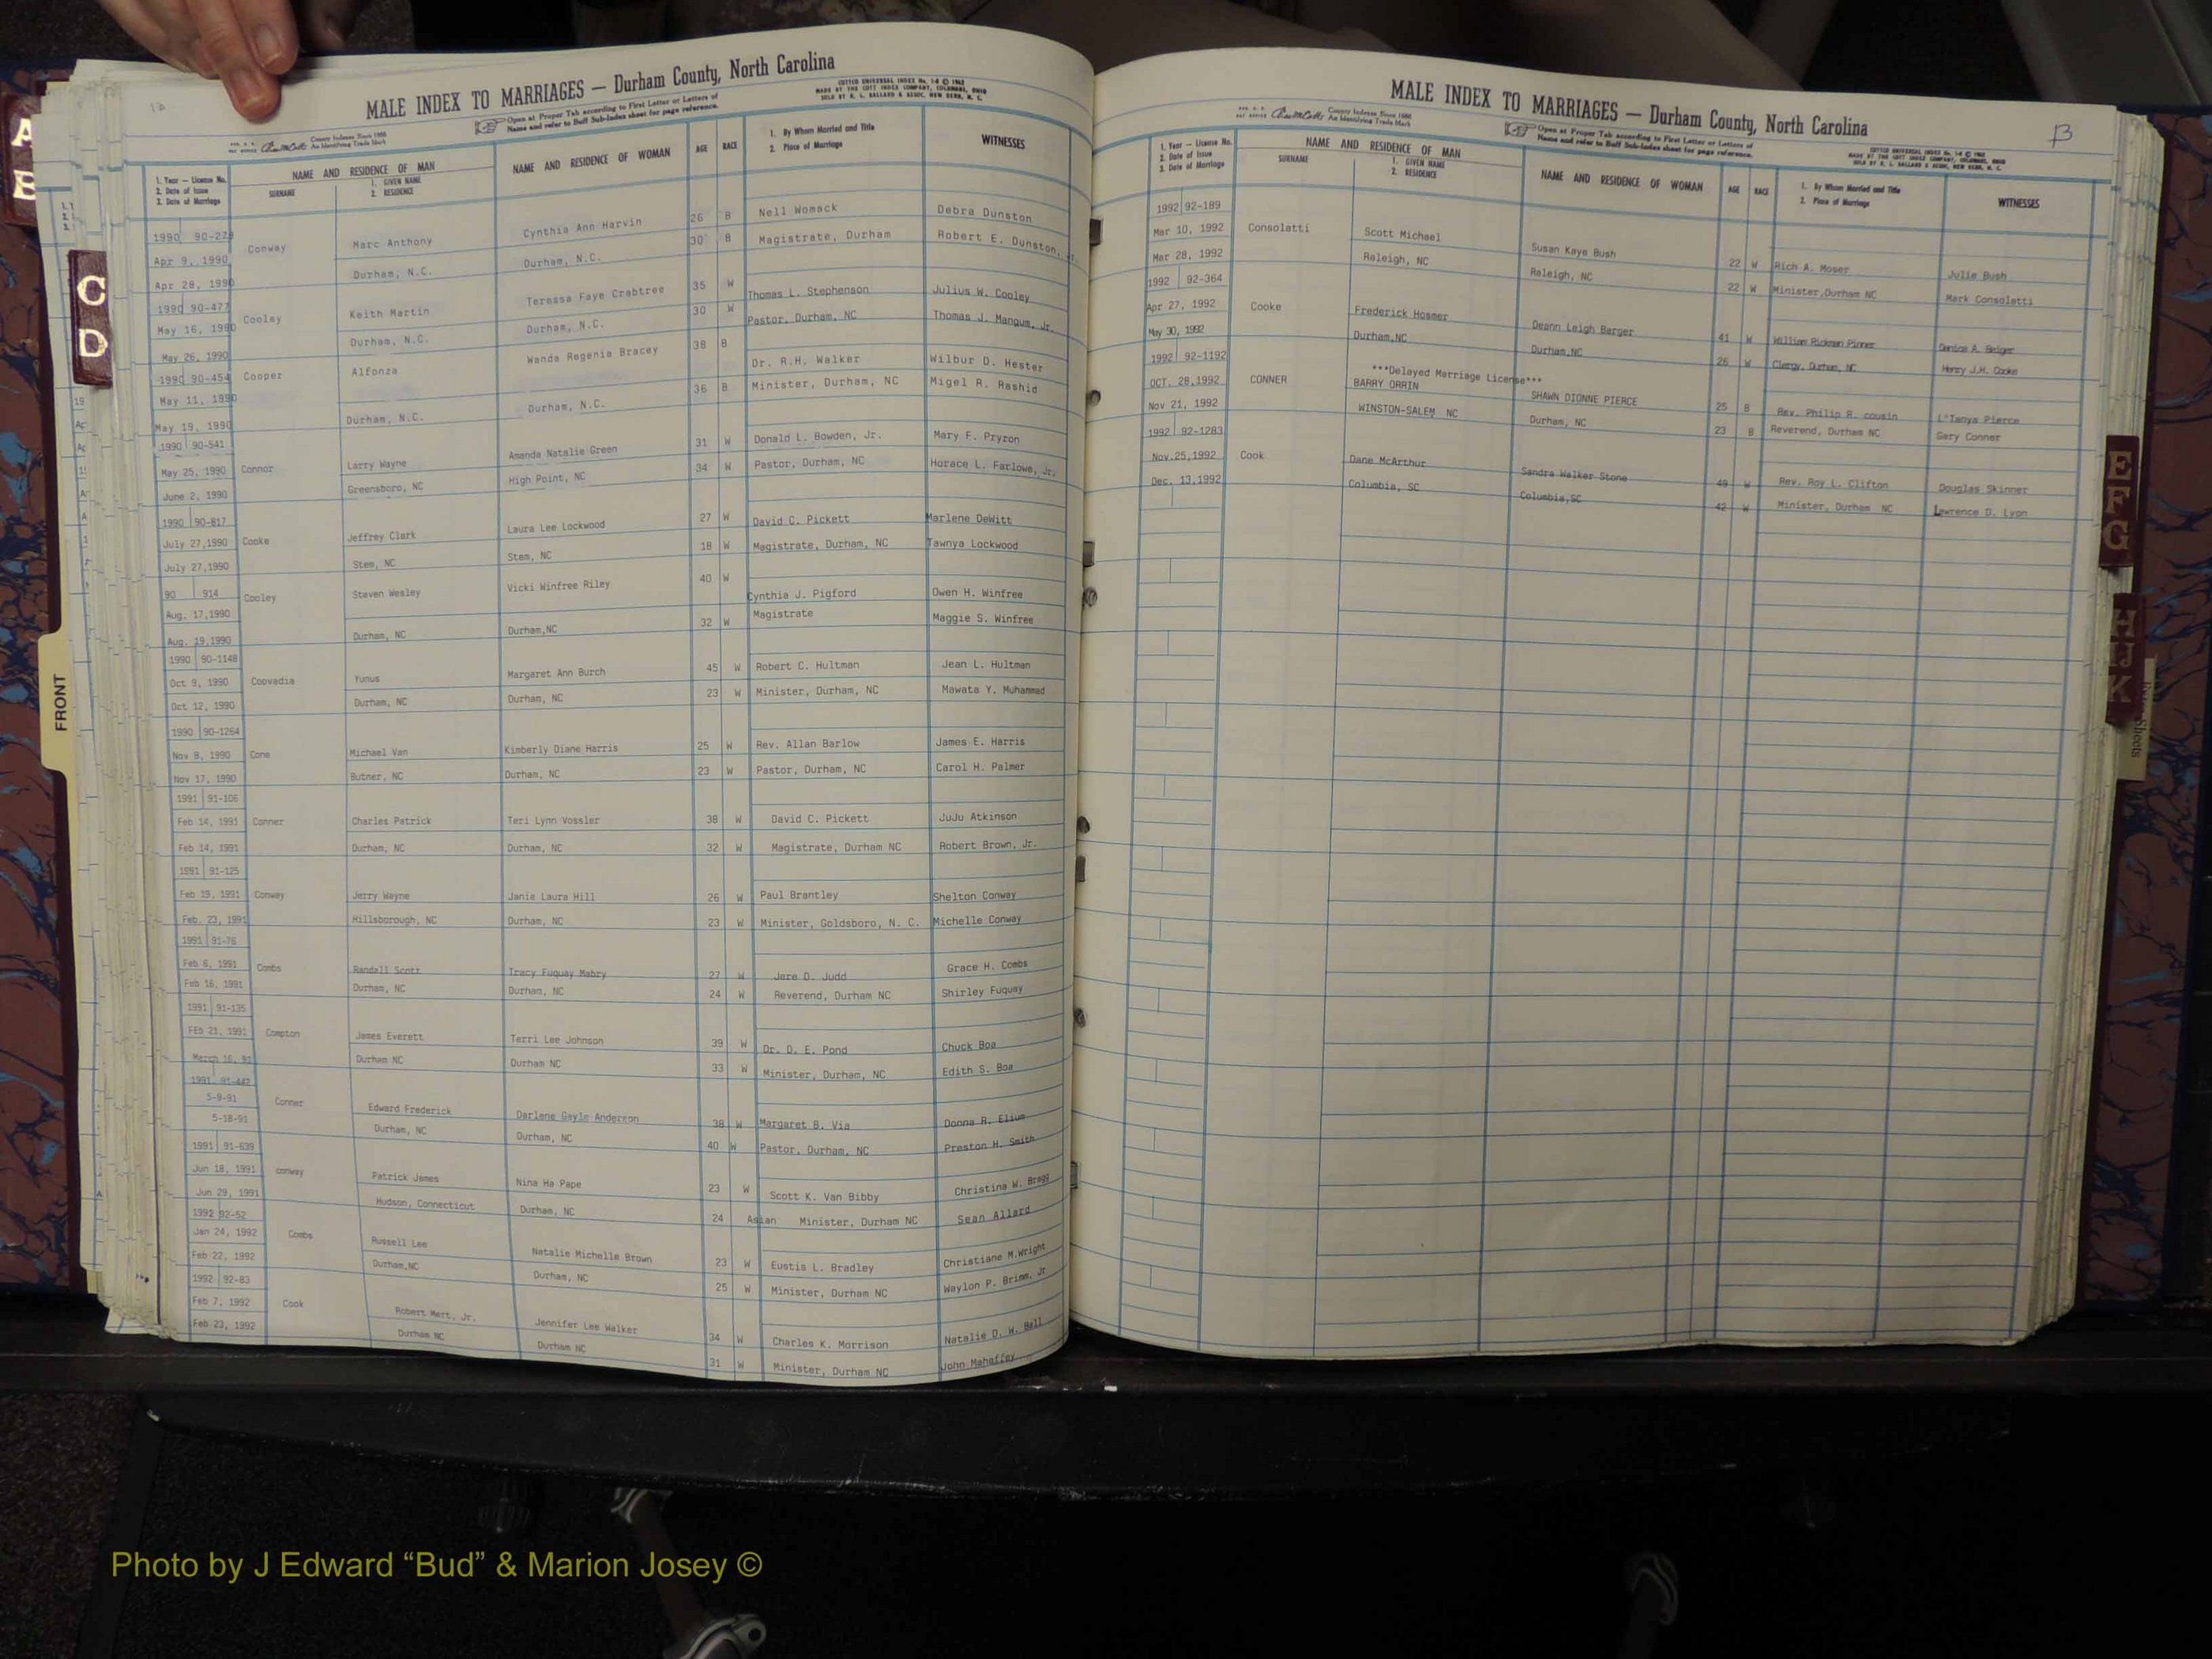 MALE INDEX TO MARRIAGES — Durham County, North Carolina
Open at Proper Tab according to First Letter or Letters of
Name and refer to Buff Sub-Index sheet for page reference.
COTT UNIVERSAL INDEX
MADE BY THE COTT INDEX COMPANY, COLUMBUS, OHIO
SOLD BY R. L. BALLARD & ASSOC. NEW BERN, N. C.
County Indexes Since 1888
An Identifying Trade Mark
1. Year — License No.
2. Date of Issue
3. Date of Marriage
NAME AND RESIDENCE OF MAN
SURNAME
1. GIVEN NAME
2. RESIDENCE
NAME AND RESIDENCE OF WOMAN
AGE
RACE
1. By Whom Married and Title
2. Place of Marriage
WITNESSES
1990 Conway Marc Anthony Cynthia Ann Harvin 26 B Nell Womack Debra Dunston
Apr 9, 1990 Durham, N.C. Durham, N.C. 30 B Magistrate, Durham Robert E. Dunston,
Apr 28, 1990
1990 90-477 Cooley Keith Martin Teressa Faye Crabtree 35 W Thomas L. Stephenson Julius W. Cooley
May 16, 1990 Durham, N.C. Durham, N.C. 30 W Pastor, Durham, NC Thomas J. Mangum, Jr.
May 26, 1990
1990 90-454 Cooper Alfonza Wanda Regenia Bracey 38 B Dr. R.H. Walker Wilbur D. Hester
May 11, 1990 Durham, N.C. Durham, N.C. 36 B Minister, Durham, NC Migel R. Rashid
May 19, 1990
1990 90-541
May 25, 1990 Connor Larry Wayne Amanda Natalie Green 31 W Donald L. Bowden, Jr. Mary F. Pryron
June 2, 1990 Greensboro, NC High Point, NC 34 W Pastor, Durham, NC Horace L. Farlowe, Jr.
1990 90-817
July 27,1990 Cooke Jeffrey Clark Laura Lee Lockwood 27 W David C. Pickett Marlene DeWitt
July 27,1990 Stem, NC Stem, NC 18 W Magistrate, Durham, NC Tawnya Lockwood
90 914 Cooley Steven Wesley Vicki Winfree Riley 40 W Cynthia J. Pigford Owen H. Winfree
Aug. 17,1990 Durham, NC Durham,NC 32 W Magistrate Maggie S. Winfree
Aug. 19,1990
1990 90-1148
Oct 9, 1990 Coovadia Yunus Margaret Ann Burch 45 W Robert C. Hultman Jean L. Hultman
Oct 12, 1990 Durham, NC Durham, NC 23 W Minister, Durham, NC Mawata Y. Muhammad
1990 90-1264
Nov 8, 1990 Cone Michael Van Kimberly Diane Harris 25 W Rev. Allan Barlow James E. Harris
Nov 17, 1990 Butner, NC Durham, NC 23 W Pastor, Durham, NC Carol H. Palmer
1991 91-106
Feb 14, 1991 Conner Charles Patrick Teri Lynn Vossler 38 W David C. Pickett JuJu Atkinson
Feb 14, 1991 Durham, NC Durham, NC 32 W Magistrate, Durham NC Robert Brown, Jr.
1991 91-125
Feb 19, 1991 Conway Jerry Wayne Janie Laura Hill 26 W Paul Brantley Shelton Conway
Feb. 23, 1991 Hillsborough, NC Durham, NC 23 W Minister, Goldsboro, N. C. Michelle Conway
1991 91-76
Feb 6, 1991 Combs Randall Scott Tracy Fuquay Mabry 27 W Jere D. Judd Grace H. Combs
Feb 16, 1991 Durham, NC Durham, NC 24 W Reverend, Durham NC Shirley Fuquay
1991 91-135
FEb 21, 1991 Compton James Everett Terri Lee Johnson 39 W Dr. D. E. Pond Chuck Boa
March 16, 91 Durham NC Durham NC 33 W Minister, Durham, NC Edith S. Boa
1991 91-442
5-9-91 Conner Edward Frederick Darlene Gayle Anderson 38 W Margaret B. Via Donna R. Elium
5-18-91 Durham, NC Durham, NC 40 W Pastor, Durham, NC Preston H. Smith
1991 91-639
Jun 18, 1991 conway Patrick James Nina Ha Pape 23 W Scott K. Van Bibby Christina W. Bragg
Jun 29, 1991 Hudson, Connecticut Durham, NC 24 Asian Minister, Durham NC Sean Allard
1992 92-52
Jan 24, 1992 Combs Russell Lee Natalie Michelle Brown 23 W Eustis L. Bradley Christiane M.Wright
Feb 22, 1992 Durham,NC Durham, NC 25 W Minister, Durham NC Waylon P. Brimm, Jr
1992 92-83
Feb 7, 1992 Cook Robert Mert, Jr. Jennifer Lee Walker 34 W Charles K. Morrison Natalie D. W. Ball
Feb 23, 1992 Durham NC Durham NC 31 W Minister, Durham NC John Mahaffey
MALE INDEX TO MARRIAGES — Durham County, North Carolina
13
Open at Proper Tab according to First Letter or Letters of
Name and refer to Buff Sub-Index sheet for page reference.
County Indexes Since 1888
An Identifying Trade Mark
1. Year — License No.
2. Date of Issue
3. Date of Marriage
NAME AND RESIDENCE OF MAN
SURNAME
1. GIVEN NAME
2. RESIDENCE
NAME AND RESIDENCE OF WOMAN
AGE
RACE
1. By Whom Married and Title
2. Place of Marriage
WITNESSES
1992 92-189
Mar 10, 1992 Consolatti Scott Michael Susan Kaye Bush 22 W Rich A. Moser Julie Bush
Mar 28, 1992 Raleigh, NC Raleigh, NC 22 W Minister,Durham NC Mark Consolatti
1992 92-364
Apr 27, 1992 Cooke Frederick Hosmer Deann Leigh Barger 41 W William Rickman Pinner
May 30, 1992 Durham,NC Durham,NC 26 W Clergy, Durham, NC Henry J.H. Cooke
1992 92-1192 ***Delayed Marriage License***
OCT. 28,1992 CONNER BARRY ORRIN SHAWN DIONNE PIERCE 25 B Rev. Philip R. cousin L'Tanya Pierce
Nov 21, 1992 WINSTON-SALEM NC Durham, NC 23 B Reverend, Durham NC Gary Conner
1992 92-1283
Nov.25,1992 Cook Dane McArthur Sandra Walker Stone 49 W Rev. Roy L. Clifton Douglas Skinner
Dec. 13,1992 Columbia, SC Columbia,SC 42 W Minister, Durham NC Lawrence D. Lyon
A
B
C
D
FRONT
E
F
G
H
IJ
K
Sheets
Photo by J Edward “Bud” & Marion Josey ©